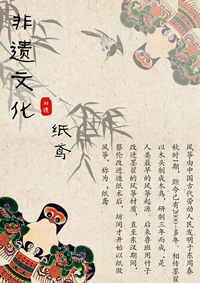 非遗文化
纸鸢
风筝由中国古代劳动人民发明于东周春
秋时期，距今已有2000多年。相传墨翟
以木头制成木鸟，研制三年而成，是
人类最早的风筝起源。后来鲁班用竹子
改进墨翟的风筝材质，直至东汉期间，
蔡伦改进造纸术后，坊间才开始以纸做
风筝，称为“纸鸢”